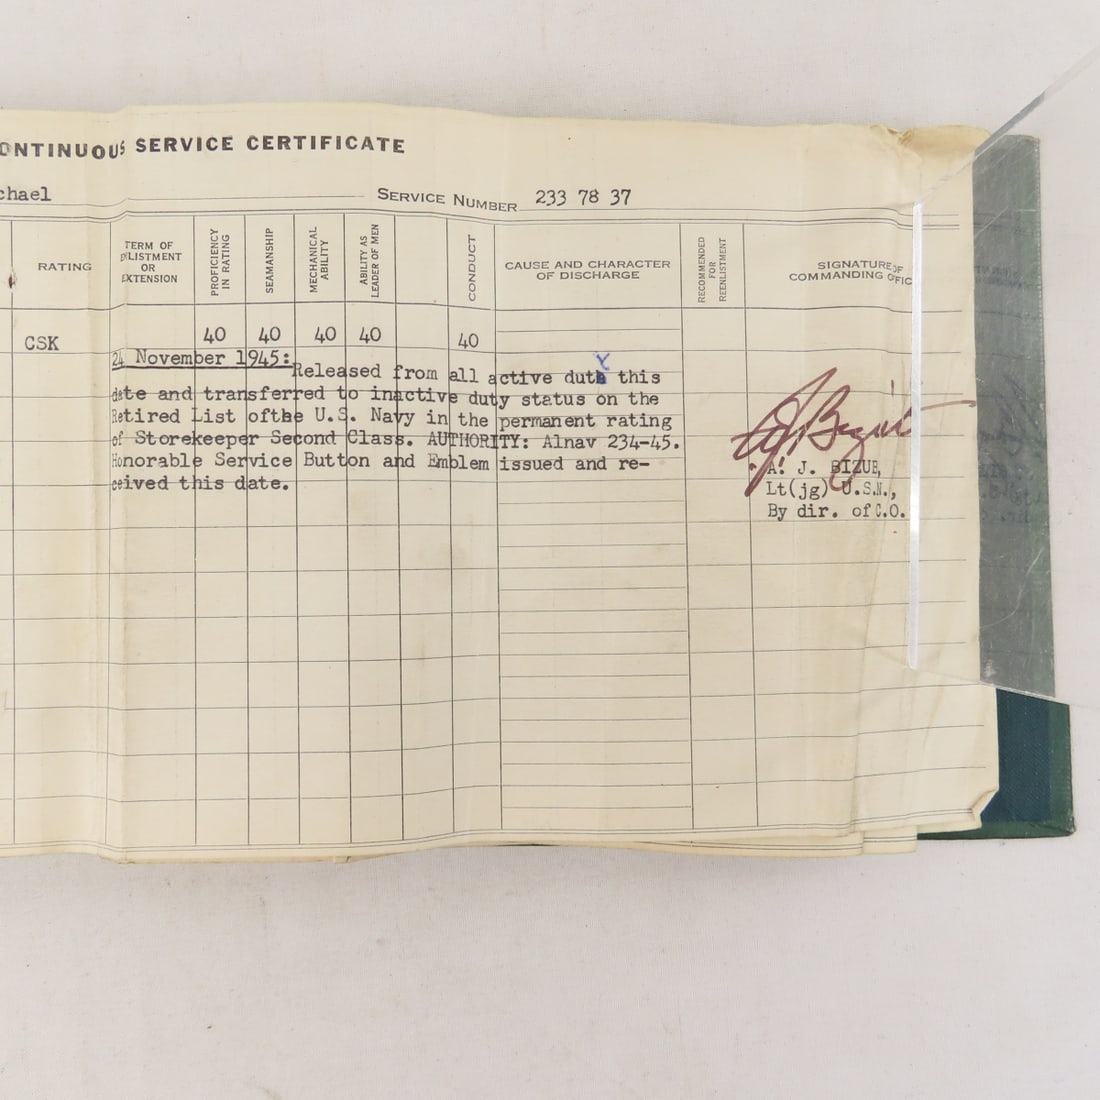 ONTINUOUS SERVICE CERTIFICATE
chael SERVICE NUMBER 233 78 37
RATING
TERM OF
NLISTMENT
OR
EXTENSION
PROFICIENCY
IN RATING
SEAMANSHIP
MECHANICAL
ABILITY
ABILITY AS
LEADER OF MEN
CONDUCT
CAUSE AND CHARACTER
OF DISCHARGE
RECOMMENDED
FOR
REENLISTMENT
SIGNATURE OF
COMMANDING OFFIC
CSK 40 40 40 40 40
24 November 1945:
Released from all active duty this
date and transferred to inactive duty status on the
Retired List ofthe U.S. Navy in the permanent rating
of Storekeeper Second Class. AUTHORITY: Alnav 234-45.
Honorable Service Button and Emblem issued and re-
ceived this date.
A. J. BIZUE,
Lt(jg) U.S.N.,
By dir. of C.O.